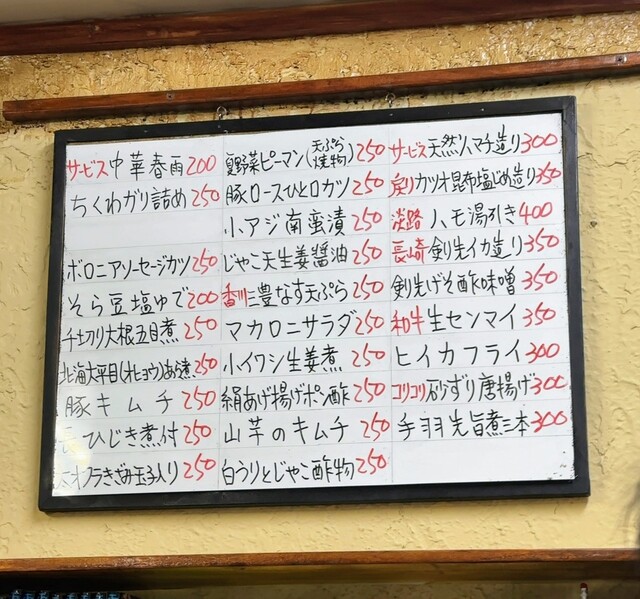 サービス中華春雨200
ちくわガリ詰め250
ボロニアソーセージカツ250
そら豆塩ゆで200
千切り大根五目煮250
北海大平目(オヒョウ)あら煮250
豚キムチ250
ひじき煮付250
オクラきざみ玉子入り250
夏野菜ピーマン(天ぷら 焼物)250
豚ロースひと口カツ250
小アジ南蛮漬250
じゃこ天生姜醬油250
香川三豊なす天ぷら250
マカロニサラダ250
小イワシ生姜煮250
絹あげ揚げポン酢250
山芋のキムチ250
白うりとじゃこ酢物250
サービス天然ハマチ造り300
戻りカツオ昆布塩じめ造り350
淡路ハモ湯引き400
長崎剣先イカ造り350
剣先げそ酢味噌350
和牛生センマイ350
ヒイカフライ300
コリコリ砂ずり唐揚げ300
手羽先旨煮三本300